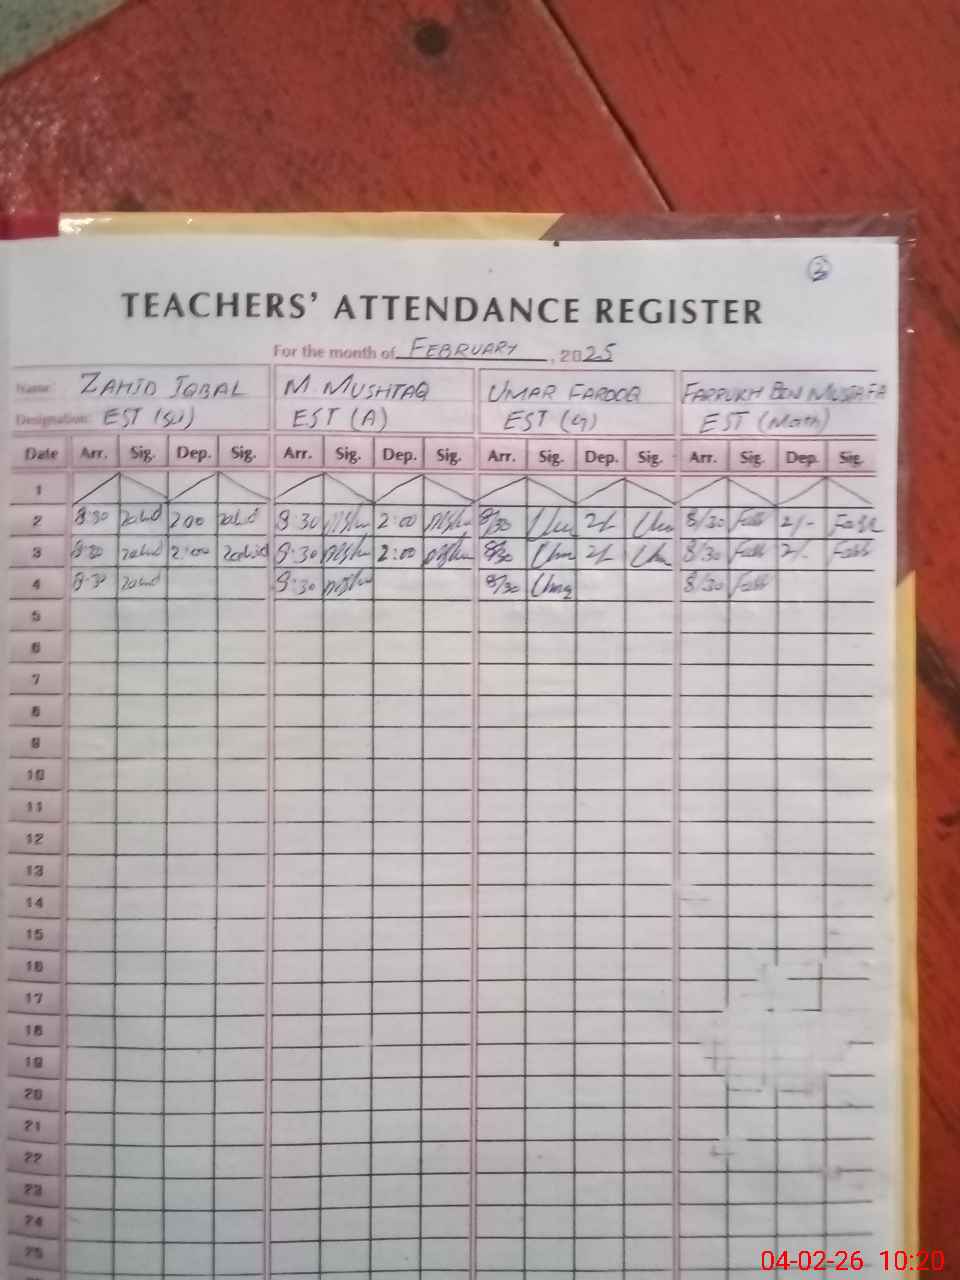 3
TEACHERS' ATTENDANCE REGISTER
For the month of FEBRUARY, 2025
Name: ZAHID IQBAL M. MUSHTAQ UMAR FAROOQ FARRUKH BIN MUSTAFA
Designation: EST (A) EST (Math)
Date Arr. Sig. Dep. Sig. Arr. Sig. Dep. Sig. Arr. Sig. Dep. Sig. Arr. Sig. Dep. Sig.
1
2 8:30 Zahid 2:00 Zahid 8:30 2:00 8/30 2/- 8/30 2/-
3 8:30 Zahid 2:00 Zahid 8:30 2:00 8/30 2/- 8/30 2/-
4 8:30 Zahid 8:30 8/30 8/30
5
6
7
8
9
10
11
12
13
14
15
16
17
18
19
20
21
22
23
24
25
04-02-26 10:20